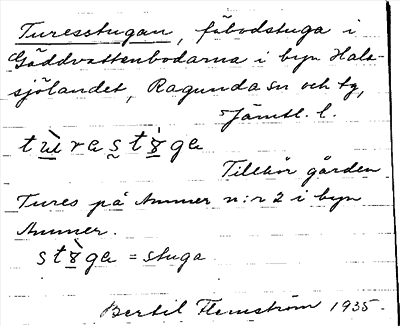 Turesstugan, fäbodstuga i
Gäddvattenbodarna i byn Hals-
sjölandet, Ragunda sn och tg,
Jämtl. l.
tùrastɤ̀ga
Tillhör gården
Tures på Ammer n:r 2 i byn
Ammer.
stɤ̀ga = stuga
Bertil Flemström 1935.